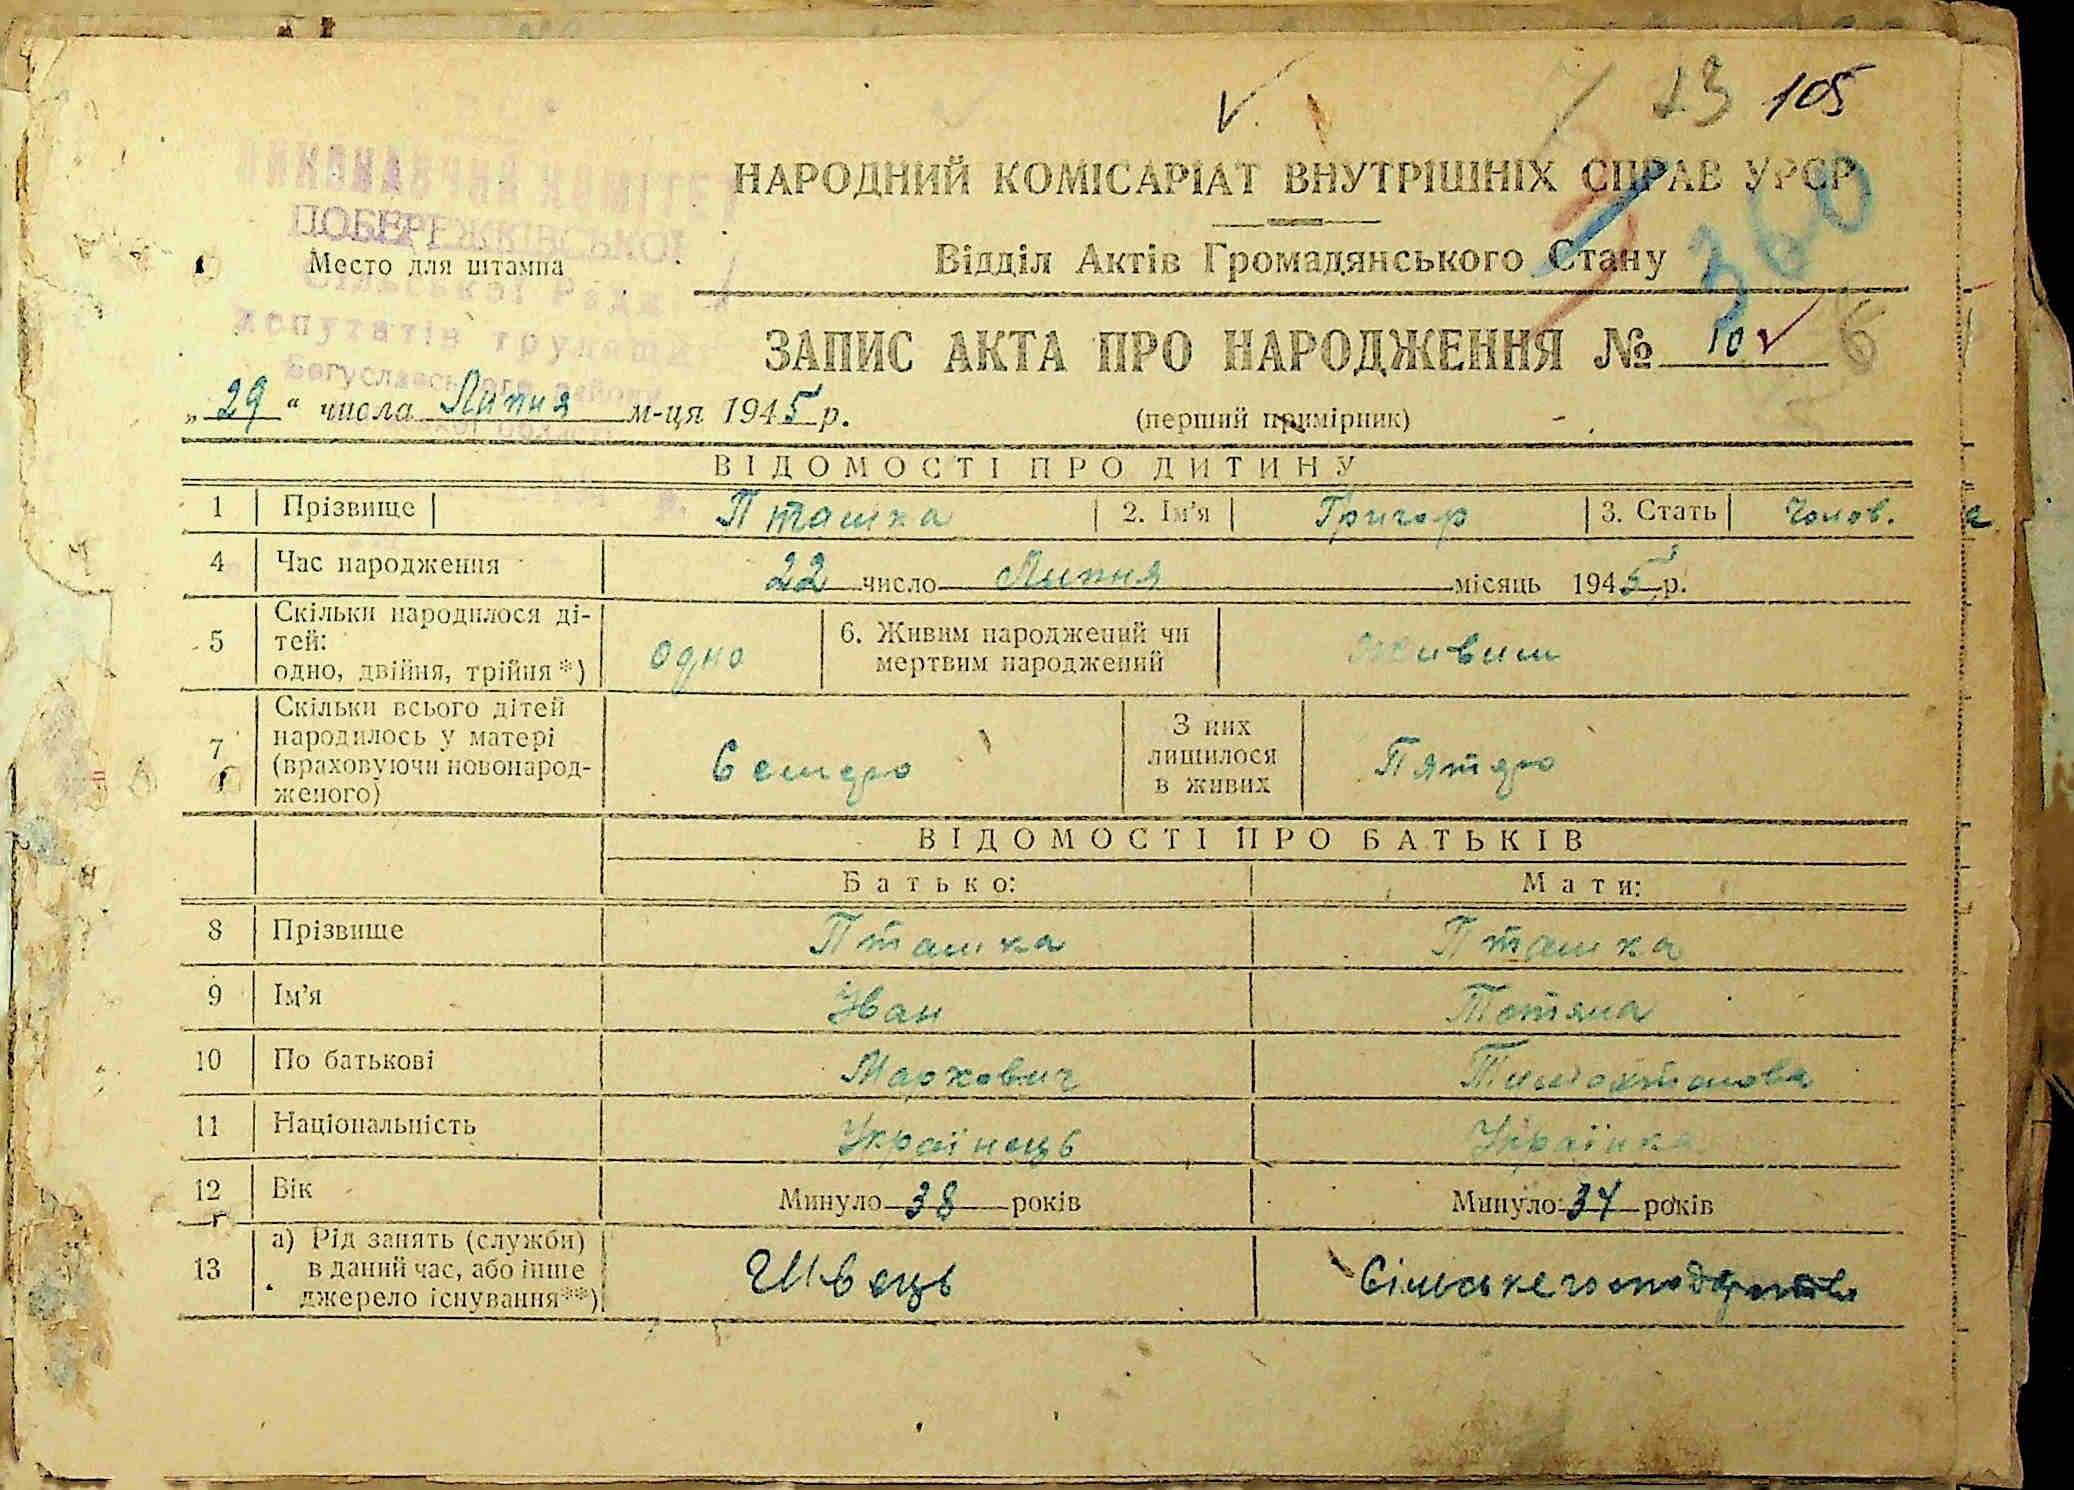 13 105
ВИКОНАВЧИЙ КОМІТЕТ
НАРОДНИЙ КОМІСАРІАТ ВНУТРІШНІХ СПРАВ УРСР
ПОБЕРЕЖКІВСЬКОЇ
360
Место для штампа
Відділ Актів Громадянського Стану
Сільської Ради
депутатів трудящих
ЗАПИС АКТА ПРО НАРОДЖЕННЯ № 10
6
Богуславського району
„29“ числа Липня м-ця 1945 р.
(перший примірник)
ВІДОМОСТІ ПРО ДИТИНУ
1 Прізвище Пташка 2. Ім'я Григор 3. Стать Чолов.
4 Час народження 22 число Липня місяць 1945 р.
5 Скільки народилося ді-
тей:
одно, двійня, трійня*) одно 6. Живим народжений чи
мертвим народжений живим
7 Скільки всього дітей
народилось у матері
(враховуючи новонарод-
женого) Семеро З них
лишилося
в живих Пятеро
ВІДОМОСТІ ПРО БАТЬКІВ
Батько: Мати:
8 Прізвище Пташка Пташка
9 Ім'я Іван Тетяна
10 По батькові Маркович
11 Національність Українець Українка
12 Вік Минуло 38 років Минуло 34 років
13 а) Рід занять (служби)
в даний час, або інше
джерело існування**) Швець Сільське господарство